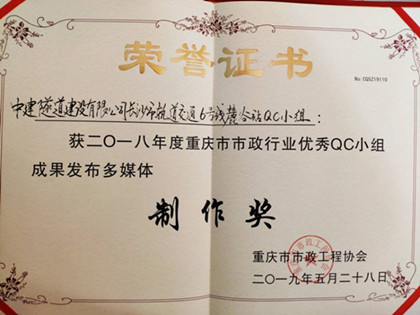 荣誉证书
No:CQSZ19110
中建隧道建设有限公司长沙市轨道交通6号线麓谷站QC小组：
获二〇一八年度重庆市市政行业优秀QC小组
成果发布多媒体
制作奖
重庆市市政工程协会
二〇一九年五月二十八日